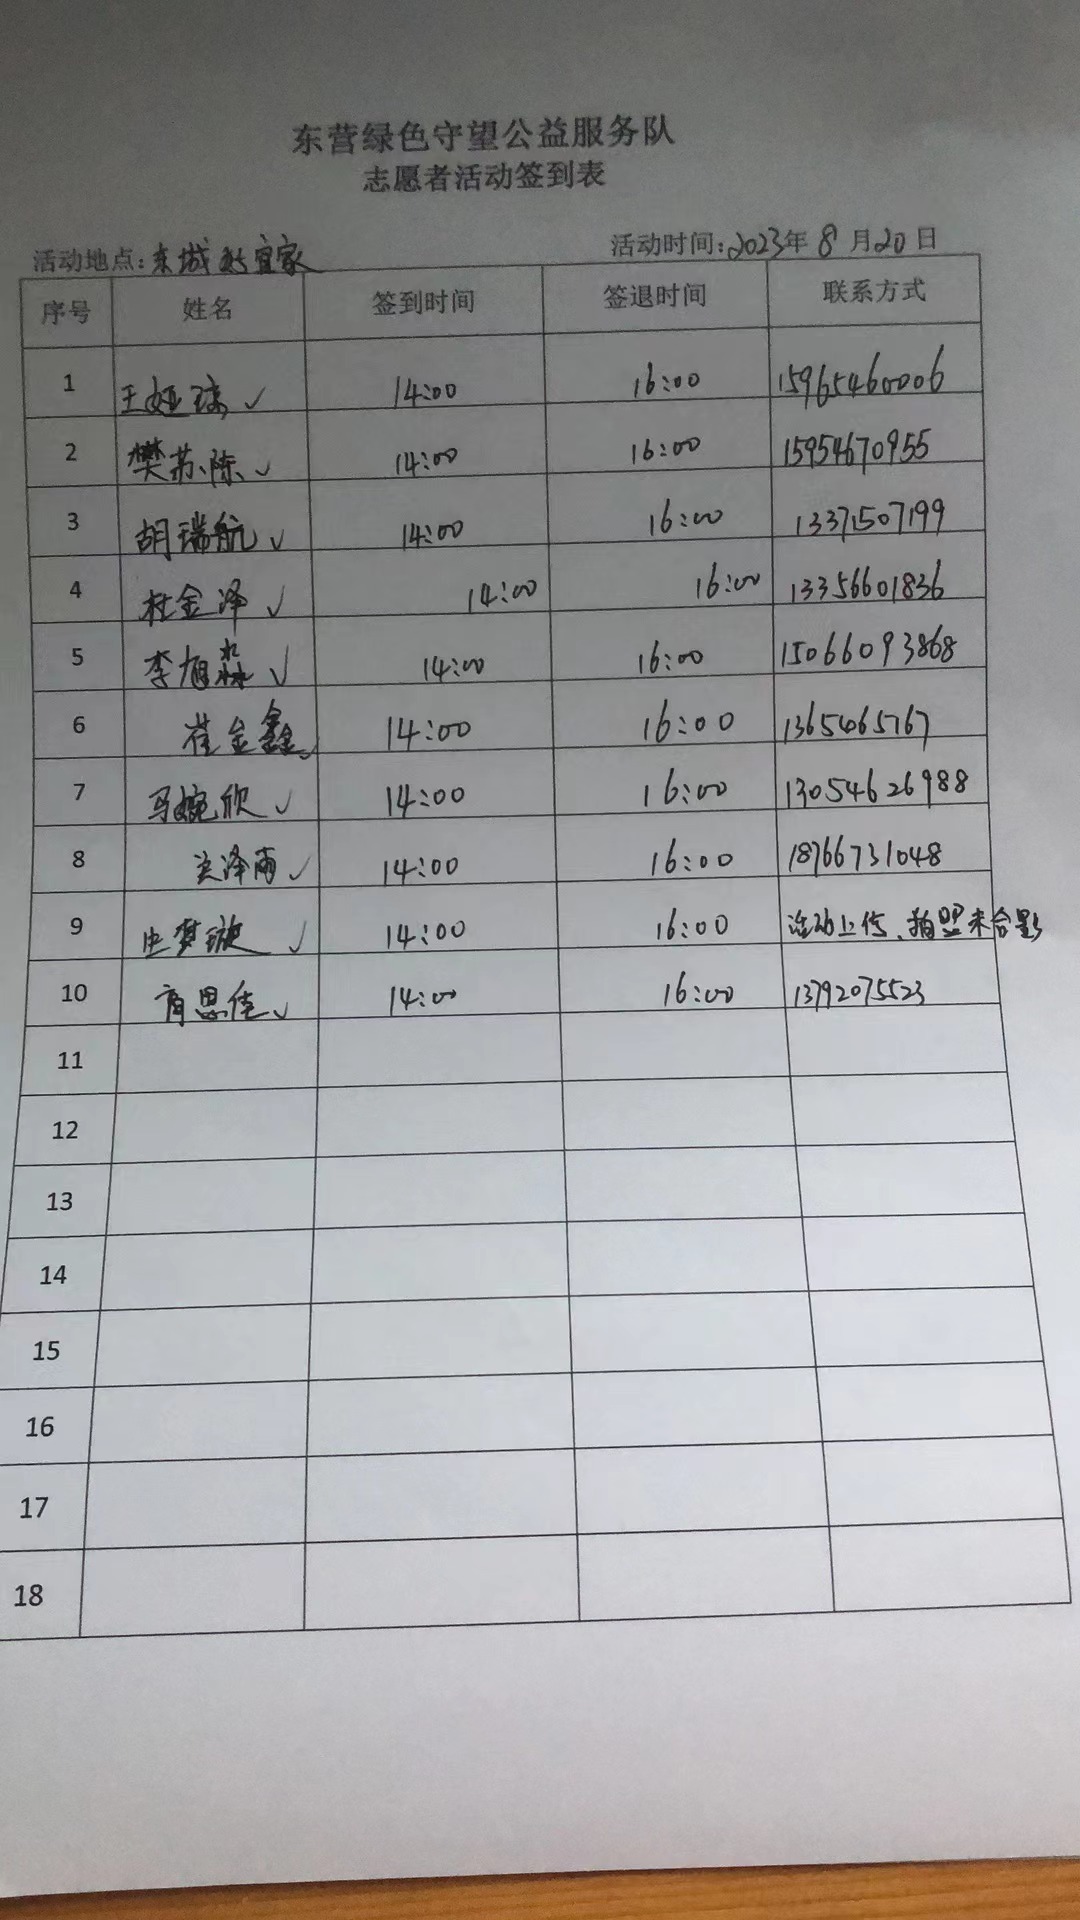 东营绿色守望公益服务队
志愿者活动签到表
活动地点:东城 宜家 活动时间:2023年8月20日
序号 姓名 签到时间 签退时间 联系方式
1 王娅 ✓ 14:00 16:00 15965460006
2 樊苏陈 ✓ 14:00 16:00 15954670955
3 胡瑞航 ✓ 14:00 16:00 13371507199
4 杜金泽 ✓ 14:00 16:00 13356601836
5 李旭淼 ✓ 14:00 16:00 15066093868
6 崔金鑫 ✓ 14:00 16:00 1365465767
7 马婉欣 ✓ 14:00 16:00 13054626988
8 泽雨 ✓ 14:00 16:00 18766731048
9 梦璇 ✓ 14:00 16:00 活动上传、拍照未合影
10 思佳 ✓ 14:00 16:00 13792075523
11
12
13
14
15
16
17
18